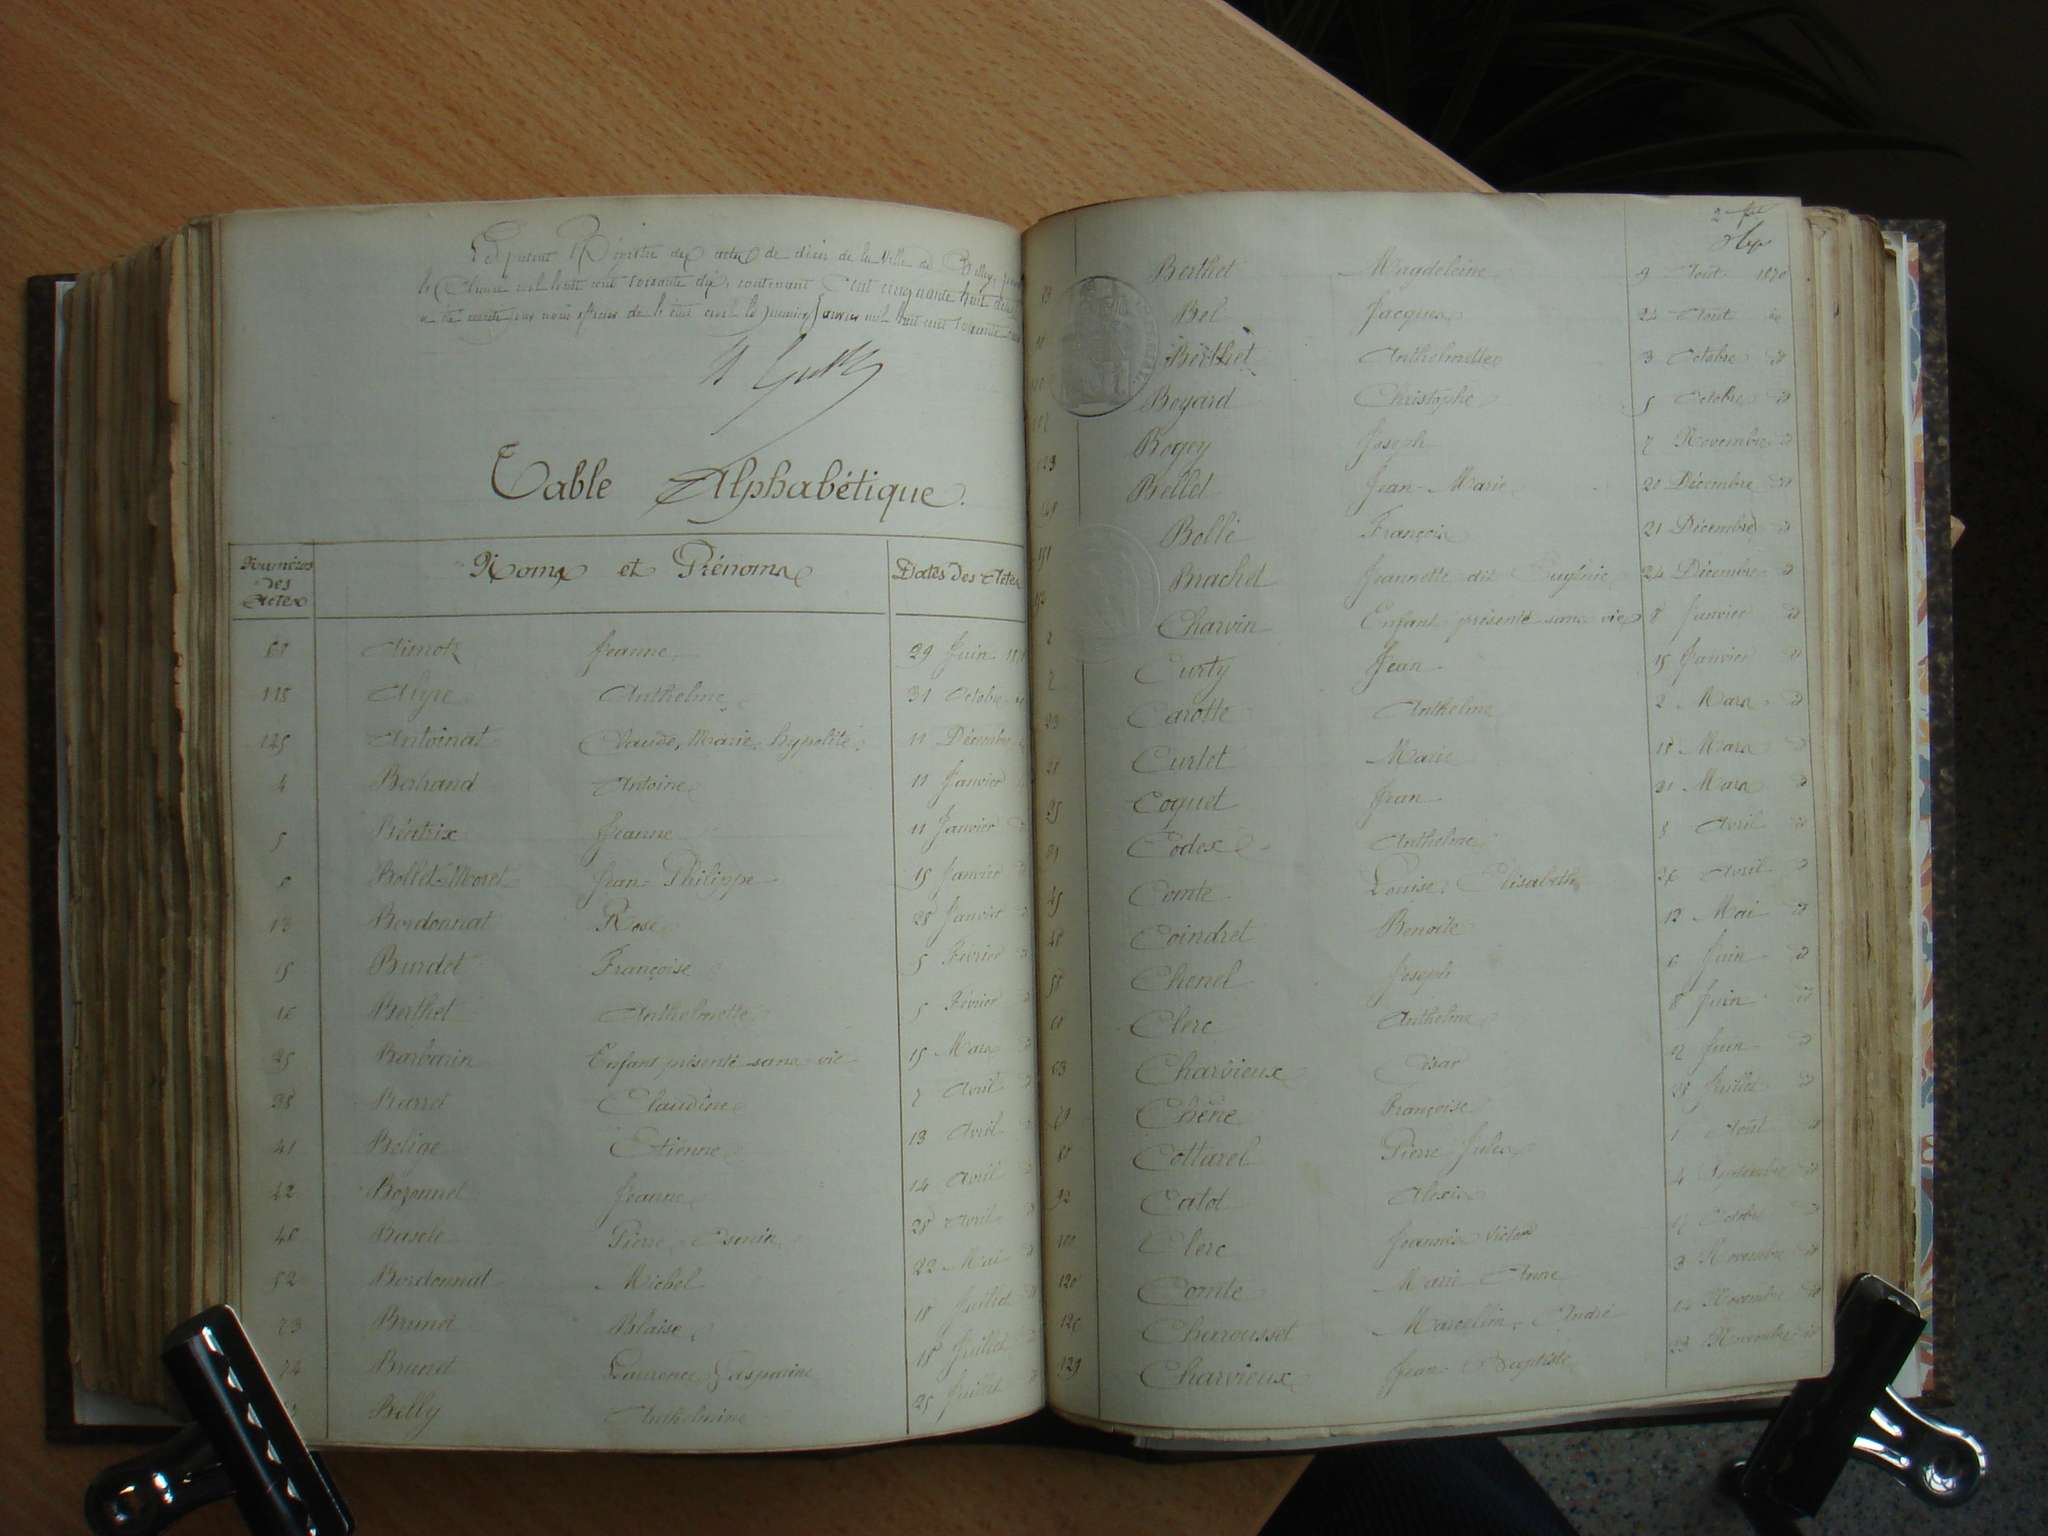 Le présent Régistre des actes de décès de la Ville de Belley, pour
l'Année mil huit cent soixante dix, contenant Cent cinquante huit
a été par nous officier de l'état civil le premier Janvier mil huit cent soixante
Table Alphabétique.
Numéros des Actes Noms et Prénoms Dates des Actes
Jeanne 29 Juin
118 Anthelme 31 Octobre
145 Antoinat Claude, Marie, hypolite 11 Décembre
4 Bertrand Antoine 11 Janvier
5 Béatrix Jeanne 11 Janvier
Bollet-Moret Jean-Philippe 15 Janvier
13 Bordonnat Rose 28 Janvier
15 Burdet Françoise 5 Février
16 Berthet Anthelmette 5 Février
25 Barbarin Enfant présenté sans vie 15 Mars
38 Barret Claudine 7 Avril
41 Étienne 13 Avril
42 Bozonnet Jeanne 14 Avril
46 Pierre 28 Avril
52 Bordonnat Michel 22 Mai
73 Brunet Blaise 18 Juillet
74 Brunet Laurence Gasparine 18 Juillet
Billy Anthelmine 25 Juillet
2
Berthet Magdeleine 9 Août 1870
Bel Jacques 24 Août id
Berthet Anthelmette 3 Octobre id
Boyard Christophe 5 Octobre id
123 Bogey Joseph 7 Novembre id
Bellet Jean-Marie 20 Décembre id
151 Bollé François 21 Décembre id
152 Brachet Jeannette dit Eugénie 24 Décembre id
2 Charvin Enfant présenté sans vie 8 Janvier id
7 Curty Jean 15 Janvier id
23 Carotte Anthelme 2 Mars id
28 Curtet Marie 18 Mars id
35 Coquet Jean 31 Mars id
Codex Anthelme 8 Avril id
45 Comte Louise, Elisabeth 26 Avril id
48 Coindret Benoîte 13 Mai id
58 Chenel Joseph 6 Juin id
60 Clerc Anthelme 8 Juin id
63 Charvieux César 12 Juin id
Chêne Françoise 28 Juillet id
80 Cottarel Pierre Jules 1 Août id
92 Catot Alexis 4 Septembre id
Clerc Victor 17 Octobre id
120 Comte Marie Anne 3 Novembre id
126 Charousset Marcellin, André 14 Novembre id
129 Charvieux Jean-Baptiste 23 Novembre id